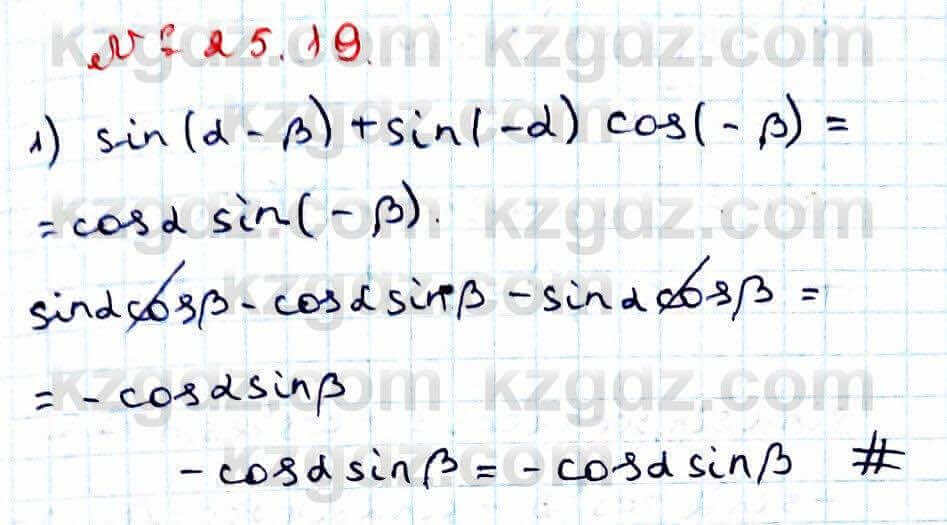 № 25.19.
1) sin(α - β) + sin(-α) cos(-β) =
= cosα sin(-β).
sinα cosβ - cosα sinβ - sinα cosβ =
= - cosα sinβ
- cosα sinβ = - cosα sinβ #
kzgdz.com kzgdz.com
kzgdz.com kzgdz.com
kzgdz.com kzgdz.com
kzgdz.com kzgdz.com
kzgdz.com